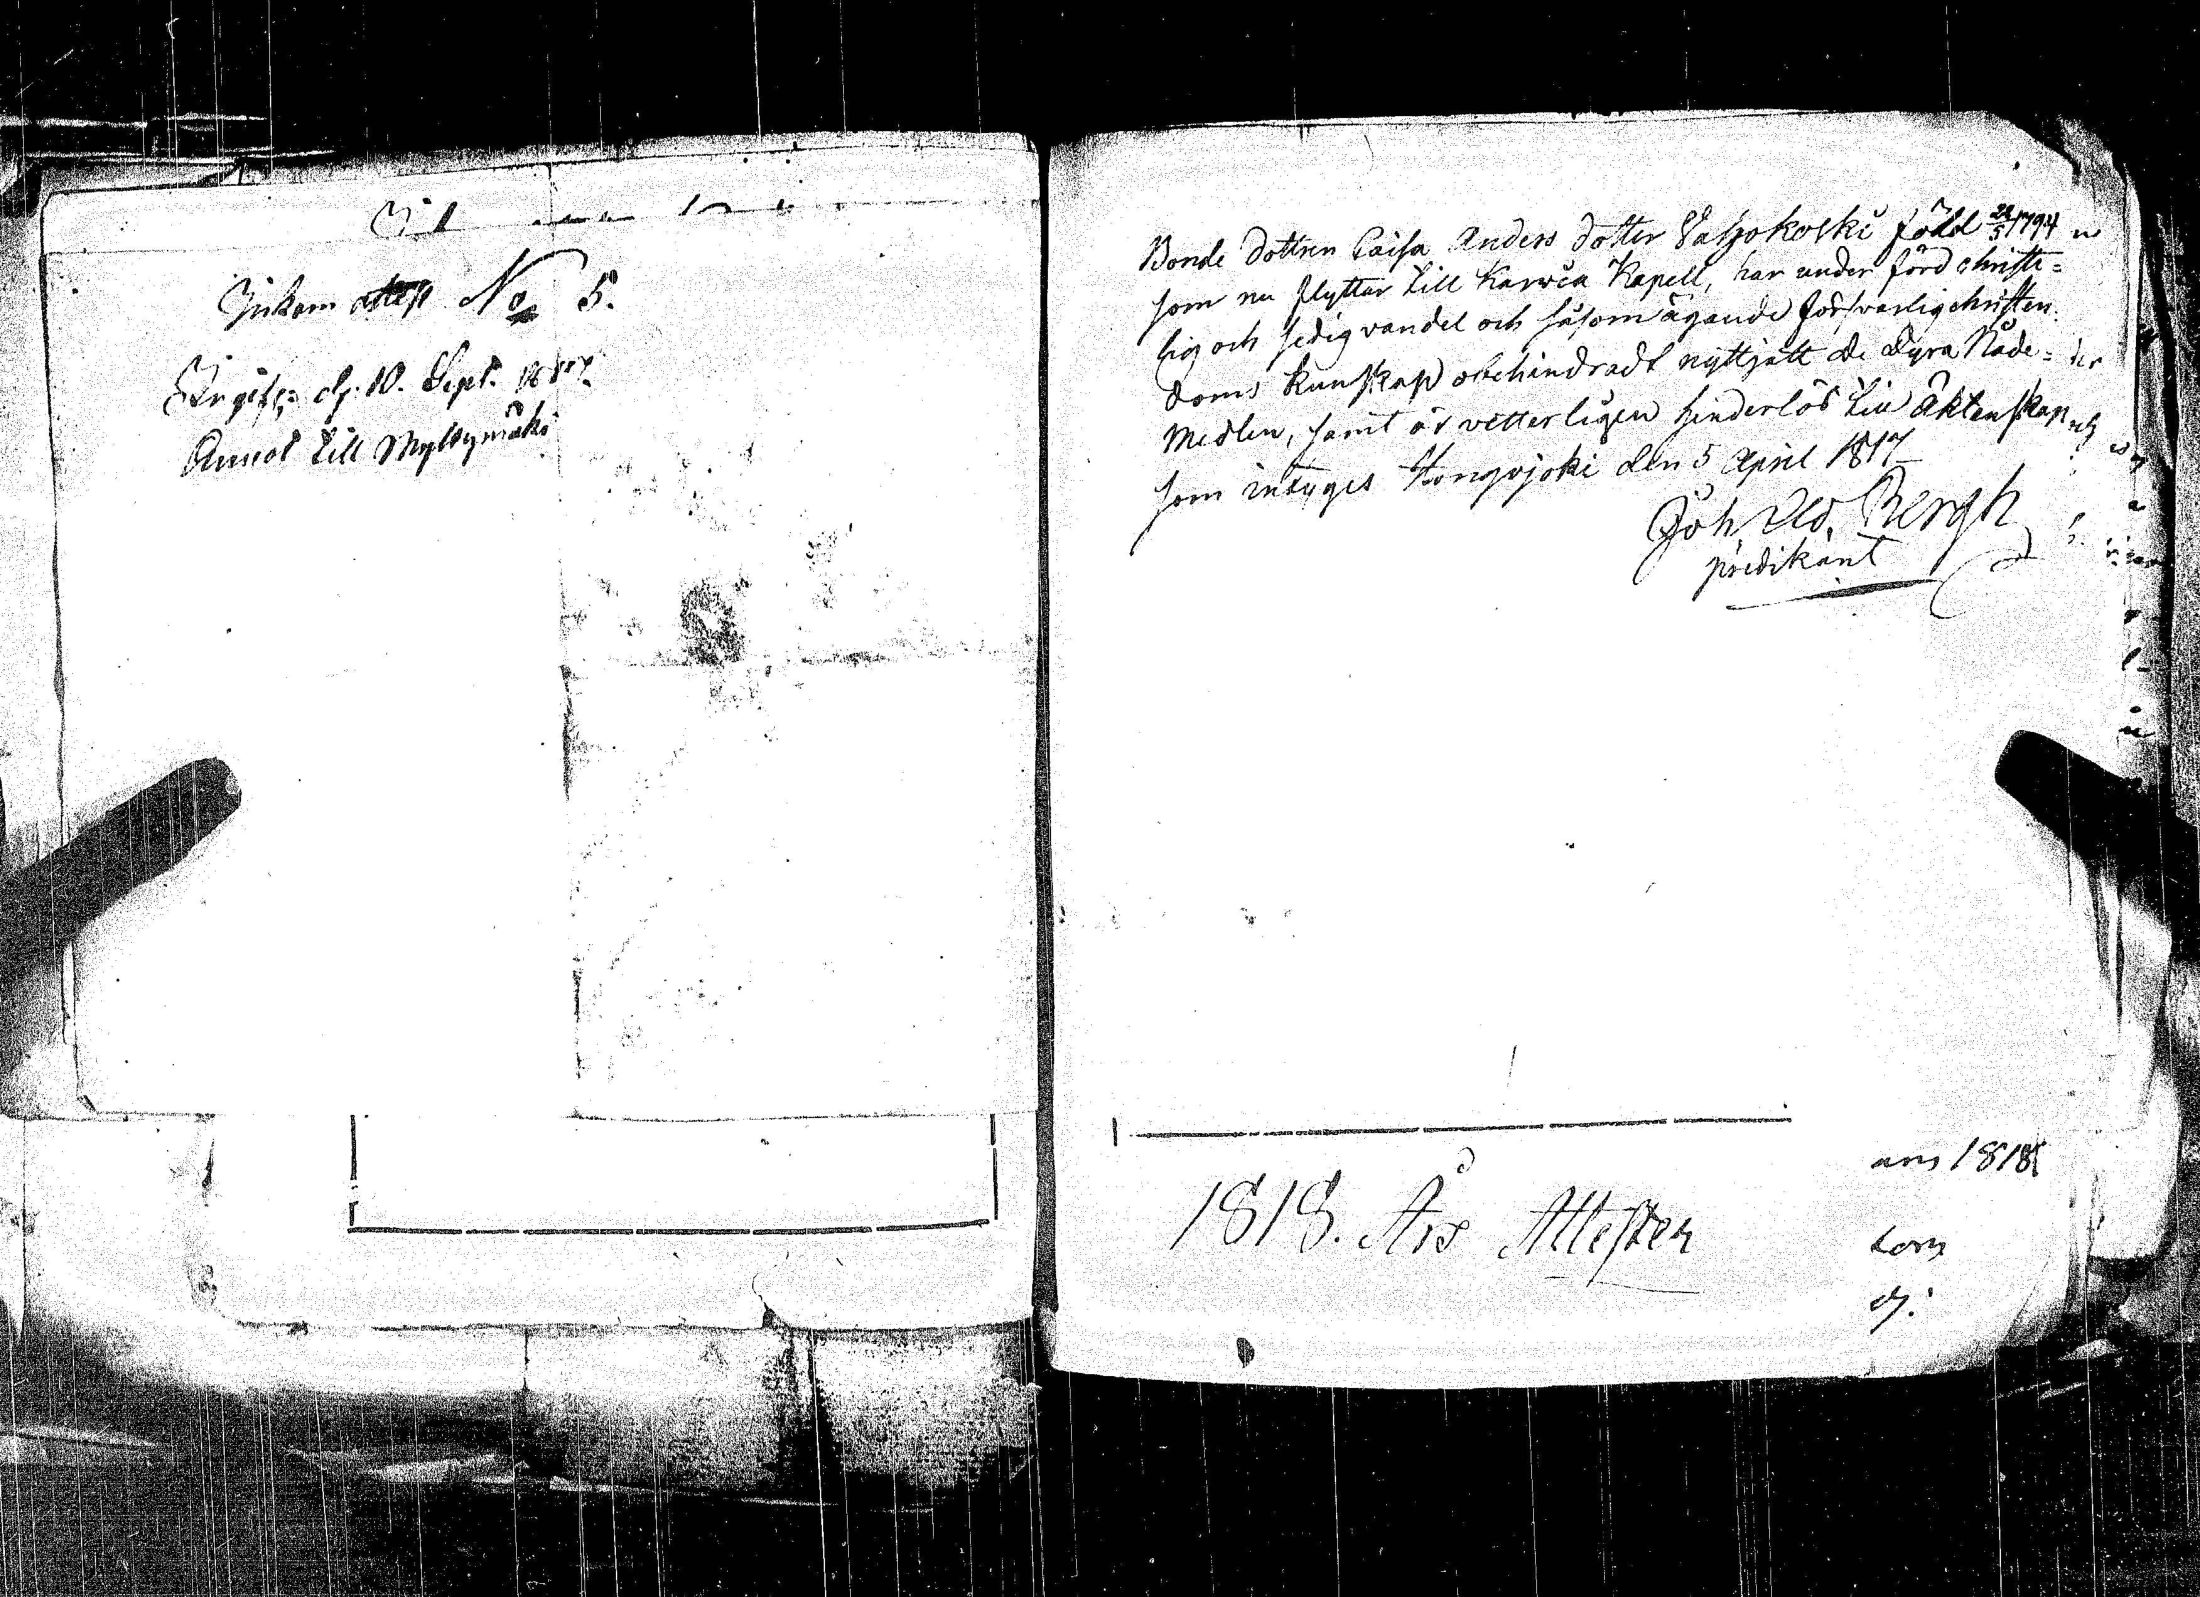 Inkom No 5.
d. 10. Sept. 1817.
till Myllymäki
Bonde dottren Caisa Anders dotter Valjokoski född 22/5 1794
som nu flyttar till Karvia Kapell, har under förd christe=
lig och sedig vandel och såsom ägande försvarlig christen=
doms kunskap obehindradt nyttjatt de dyra Nåde=
medlen, samt är vetterligen hinderlös till äktenskap
som intygas Hongojoki den 5 April 1817
Joh Bergh
predikant
ans 1818
1818. Års Attester